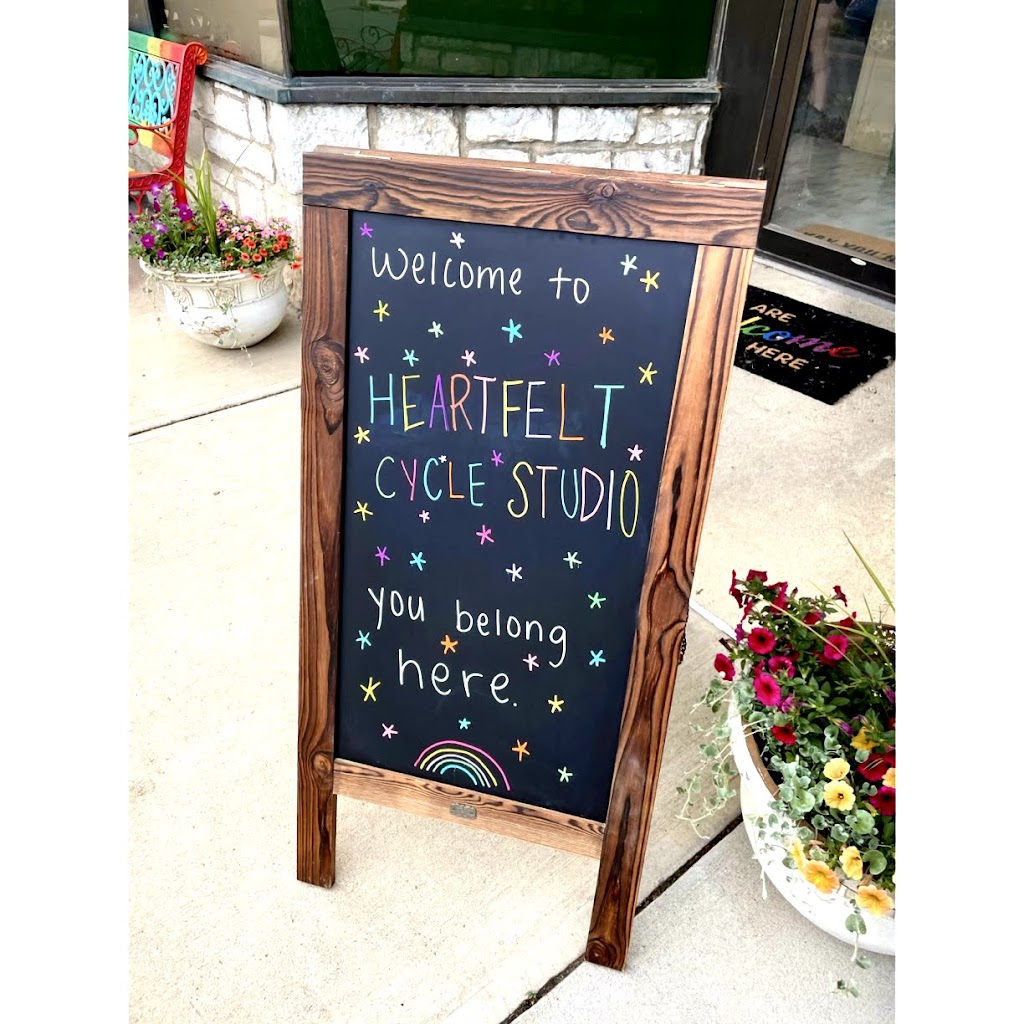 welcome to
HEARTFELT
CYCLE STUDIO
you belong
here.
ARE
HERE